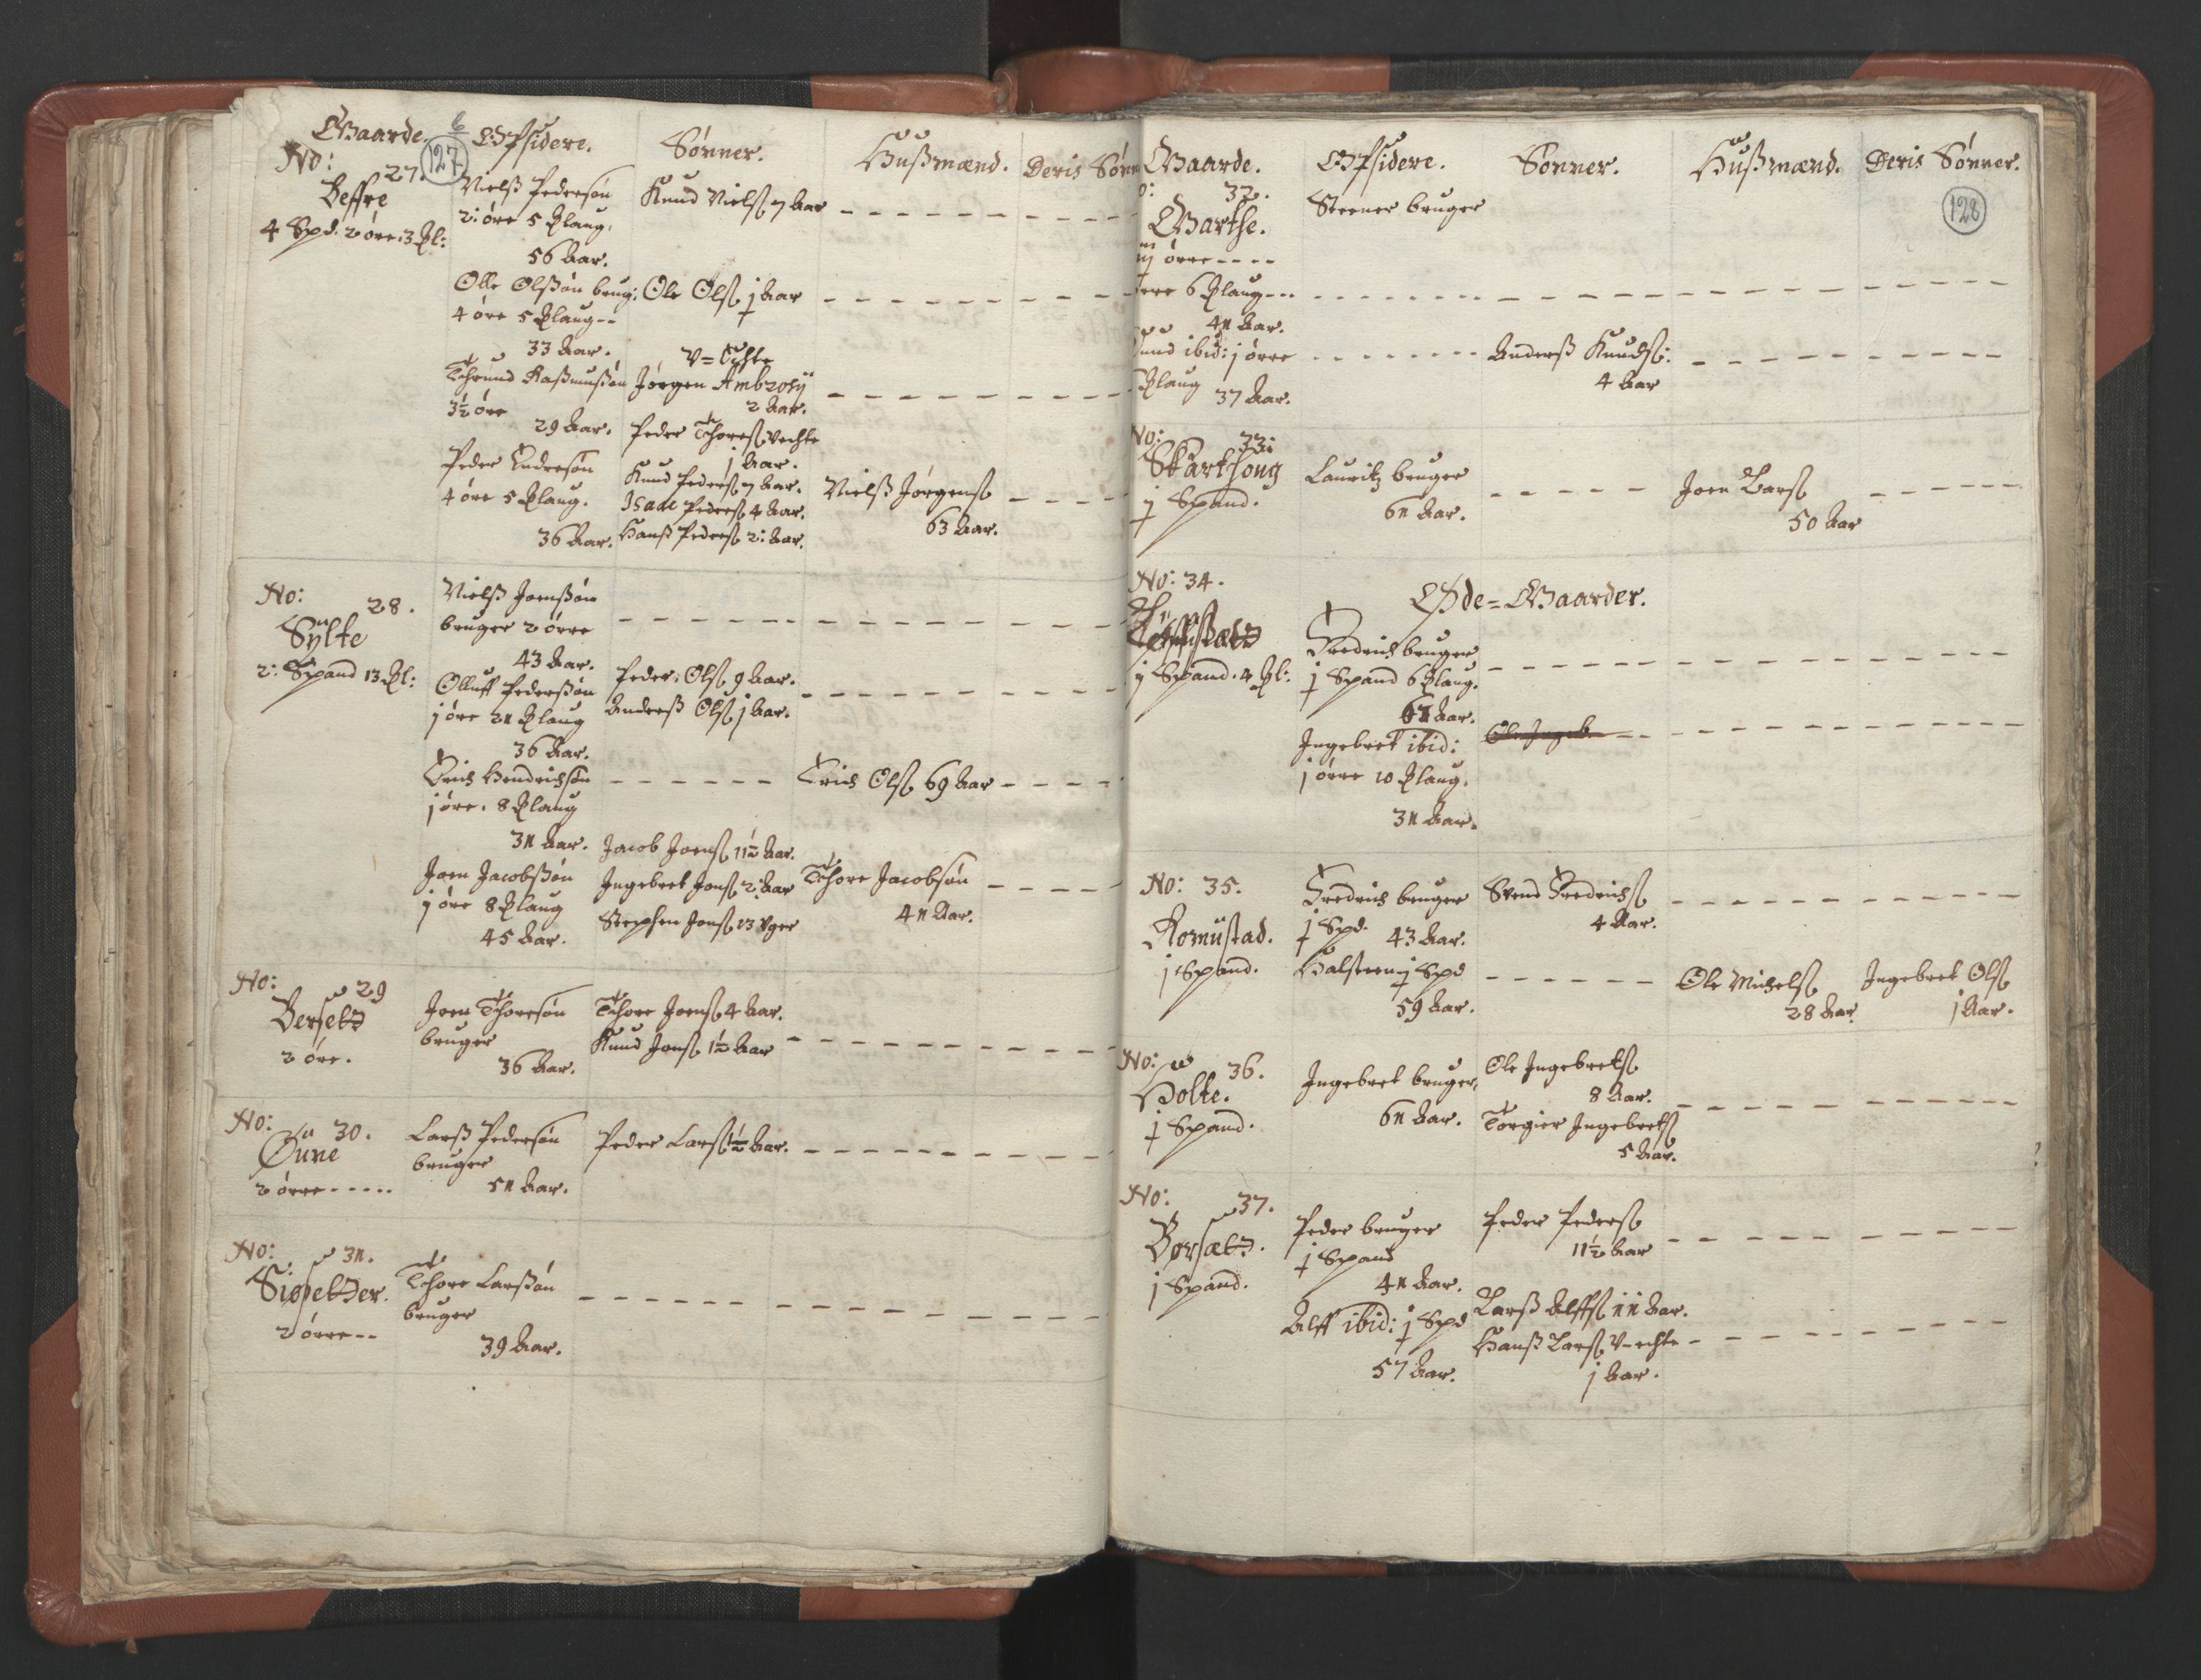 Gaarde. Opsidere. Sønner. Hußmænd. Deris Sønn
6
127
No: 27.
Beffre
4 Spd. 2 øre 3 Pl:
Nielß Pedersøn
2: øre 5 Plaug.
56 Aar.
Knud Nielß. 7 Aar
Olle Olßøn brug:
4 øre 5 Plaug
33 Aar.
Ole Olß. j Aar
Thrund Raßmusøn
3½ øre
29 Aar.
V=Echte
Jørgen Ambrosy
2 Aar.
Peder Thoreß. Vechte
j Aar.
Peder Endresøn
4 øre 5 Plaug.
36 Aar.
Knud Pederß. 7 Aar.
Isaac Pederß. 4 Aar.
Hanß Pederß. 2: Aar.
Nielß Jørgenß
63 Aar.
No: 28.
Sylte
2: Spand 13 Pl:
Nielß Joenßøn
bruger 2 ørre
43 Aar.
Olluff Pederßøn
j øre 21 Plaug
36 Aar.
Peder: Olß. 9 Aar.
Anderß Olß. j Aar.
Erich Hendrichsøn
j øre. 8 Plaug
31 Aar.
Erich Olß. 69 Aar
Joen Jacobßøn
j øre 8 Plaug
45 Aar.
Jacob Joenß. 11½ Aar.
Ingebret Jonß. 2: Aar
Stephen Jonß. 23 Vger
Thore Jacobsøn
41 Aar.
No: 29
Berset
2 øre.
Joen Thoresøn
bruger
36 Aar.
Thore Joenß. 4 Aar.
Knud Jonß. 1½ Aar
No: 30.
Øune
2 ørre
Larß Pedersøn
bruger
51 Aar.
Peder Larß. ½ Aar.
No: 31.
Siøsetter.
2 ørre
Thore Larßøn
bruger
39 Aar.
Gaarde. Opsidere. Sønner. Hußmænd. Deris Sønner.
128
32.
Garthe.
ørre
Steener bruger
øre 6 Plaug
41 Aar.
ibid: j ørre
Plaug
37 Aar.
Anderß Knudß:
4 Aar
No: 33:
Skarthoug
j Spand.
Lauritz bruger
61 Aar.
Joen Larß
50 Aar
No: 34.
j Spand. 4 Pl:
Øde=Gaarder.
Fredrich bruger
j Spand 6 Plaug.
Aar.
Ingebret ibid:
j ørre 10 Plaug.
31 Aar.
Ole Ingeb
No: 35.
Romustad.
j Spand.
Fredrich bruger
j Spd. 43 Aar.
Svend Fredrichß
4 Aar.
Halsteen j Spd
59 Aar.
Ole Michelß
28 Aar
Ingebret Olß
j Aar.
No: 36.
Holte.
j Spand.
Ingebret bruger,
61 Aar.
Ole Ingebretß
8 Aar.
Torgier Ingebretß
5 Aar.
No: 37.
Børsæt.
j Spand.
Peder bruger
j Spand
41 Aar.
Peder Pederß
11½ Aar
Alff ibid: j Spd
57 Aar.
Larß Alffß. 11 Aar.
Hanß Larß. V-echte
j Aar.